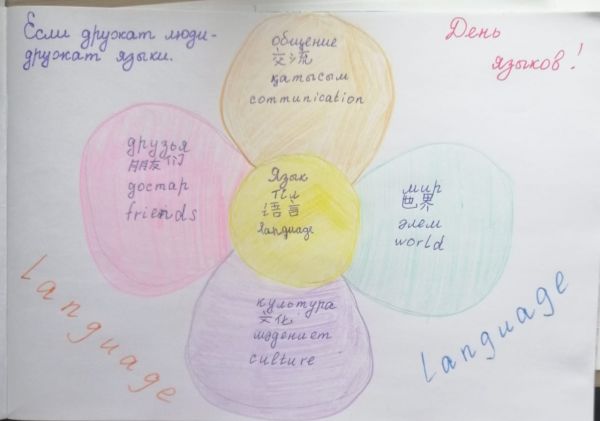 Если дружат люди-
дружат языки.
День
языков!
общение
交流
қатысым
communication
друзья
朋友们
достар
friends
Язык
Тіл
语言
language
мир
世界
әлем
world
культура
文化
мәдениет
culture
language
language